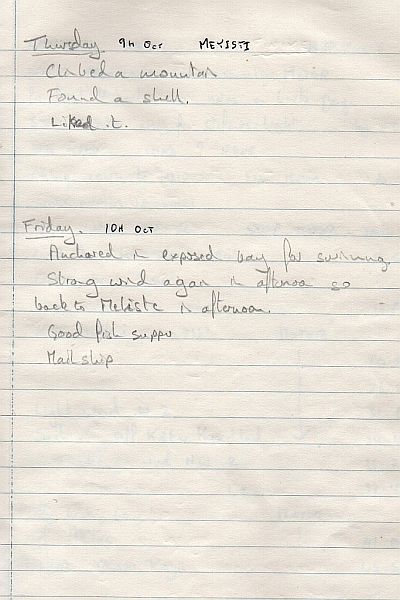 Thursday. 9H OCT MEYISTI
Climbed a mountain
Found a shell.
Liked it.
Friday. 10H OCT
Anchored in exposed bay for swimming.
Strong wind again in afternoon so
back to Mekiste in afternoon.
Good fish supper
Mail ship